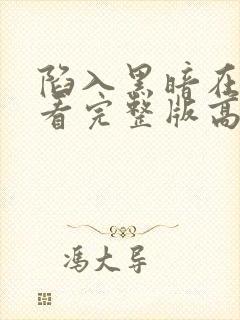 陷入黑暗在
看完整版高
冯大导